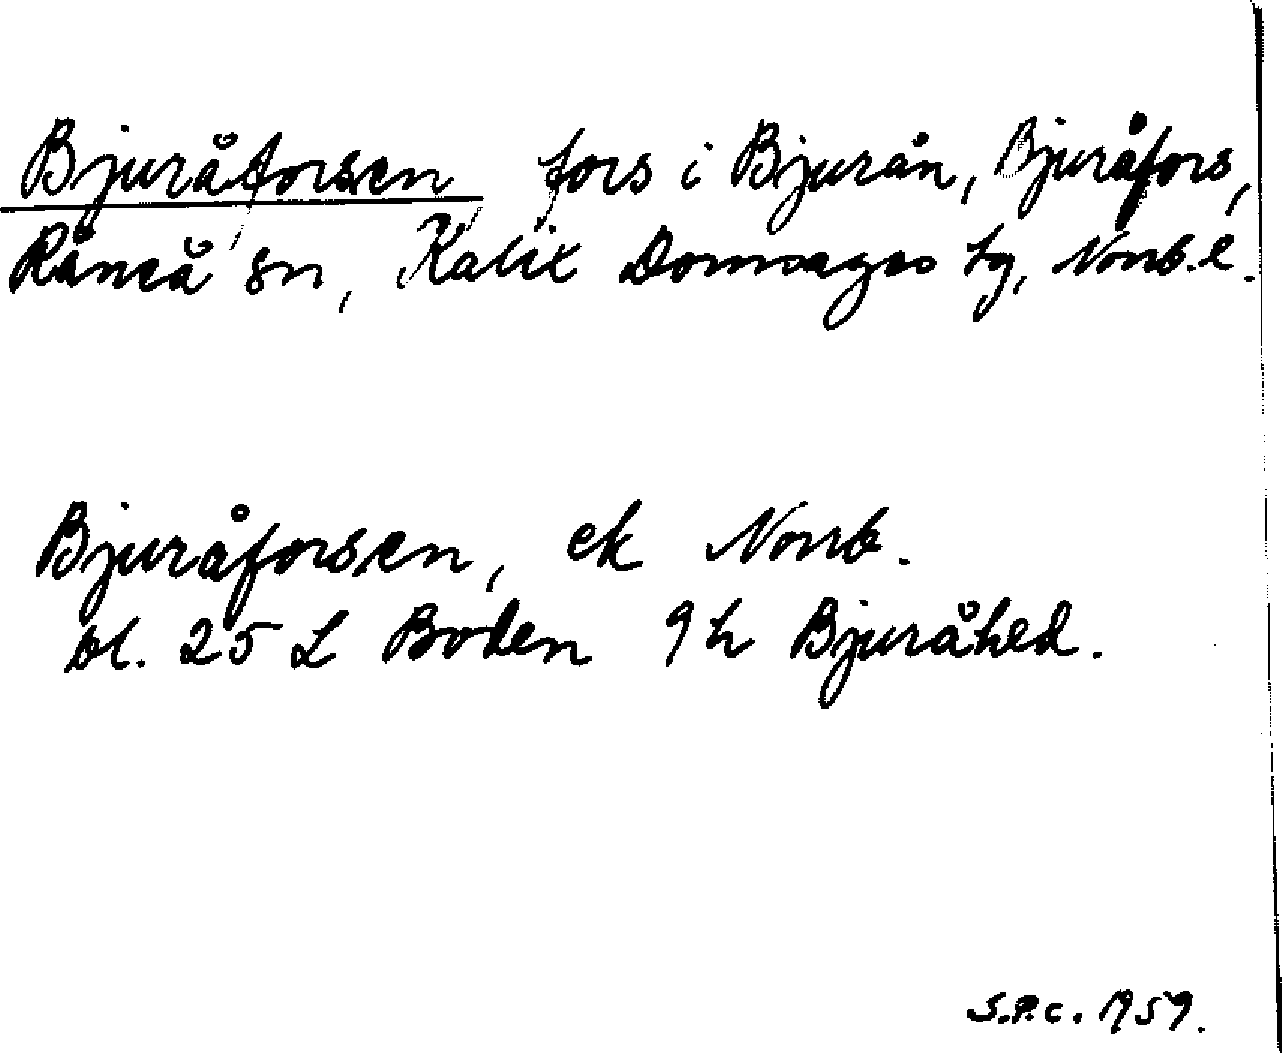 Bjuråforsen fors i Bjurån, Bjuråfors,
Råneå sn, Kalix Domsagas tg, Norrb. l.
Bjuråforsen, ek Norrb.
bl. 25 L Boden 9 h Bjuråhed.
S.P.C. 1959.